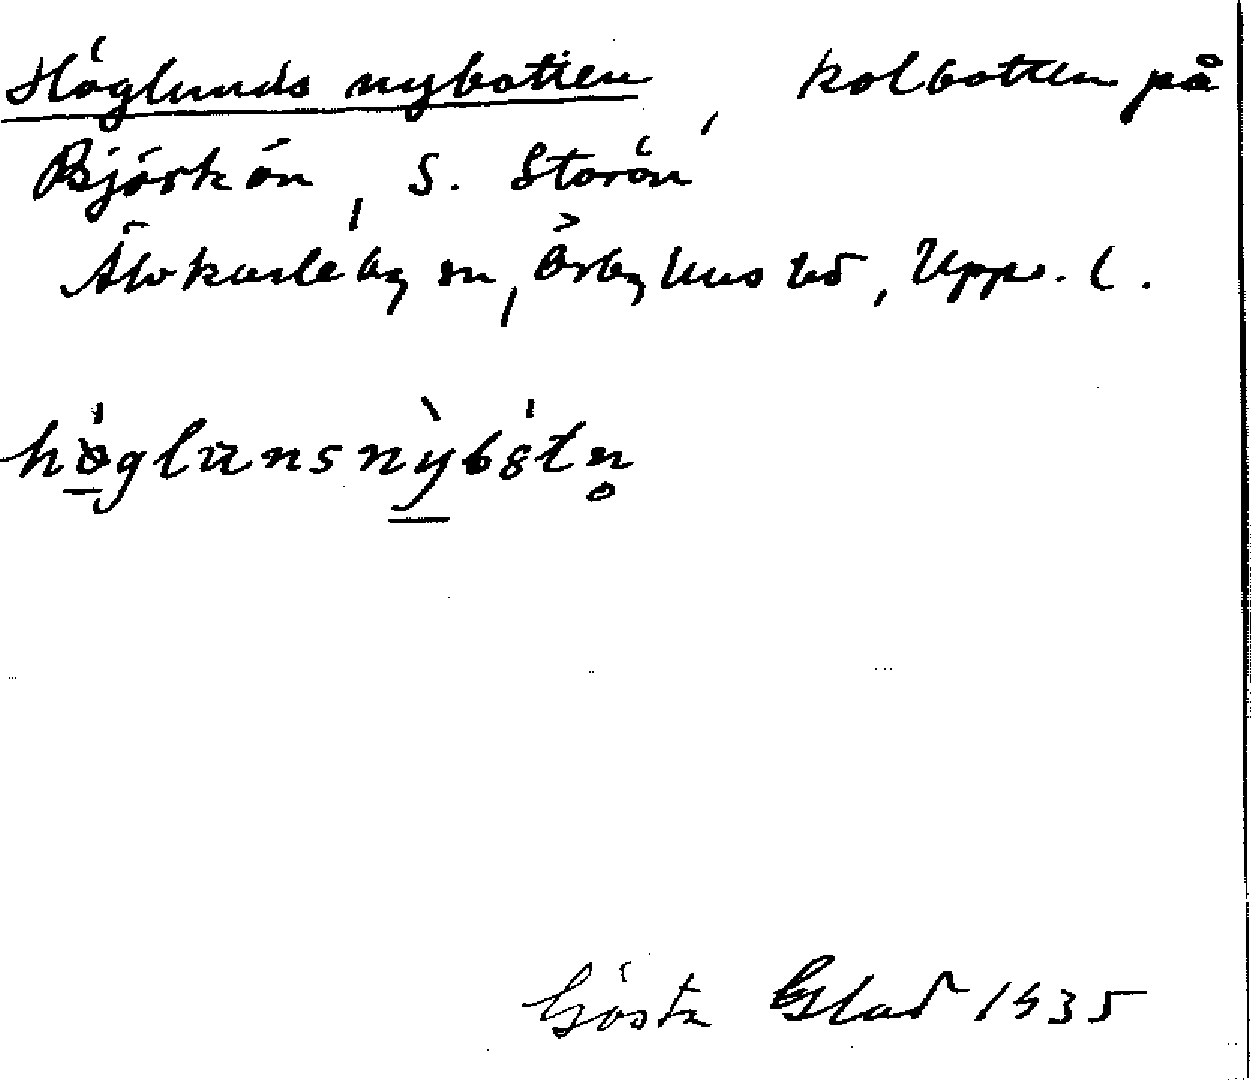 Höglunds nybotten, kolbotten på
Björkön, S. Storön
Älvkarleby sn, Örbyhus hd, Uppl.
höglunsnýbȯtn̥
Gösta Glad 1935